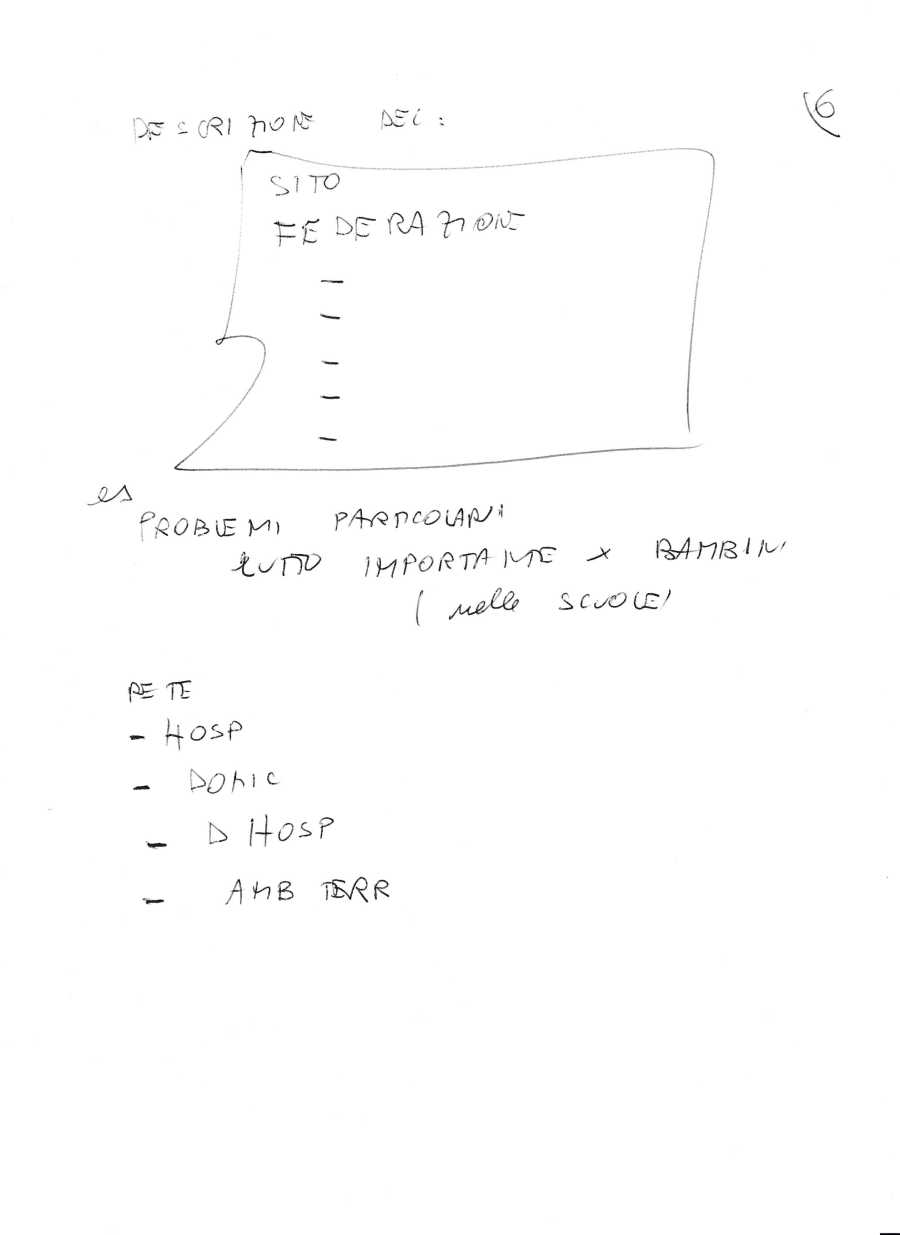 6
DESCRIZIONE DEL:
SITO
FEDERAZIONE
-
-
-
-
-
es
PROBLEMI PARTICOLARI
LUTTO IMPORTANTE x BAMBINI
( nelle SCUOLE)
RETE
- HOSP
- DOMIC
- D HOSP
- AMB TERR